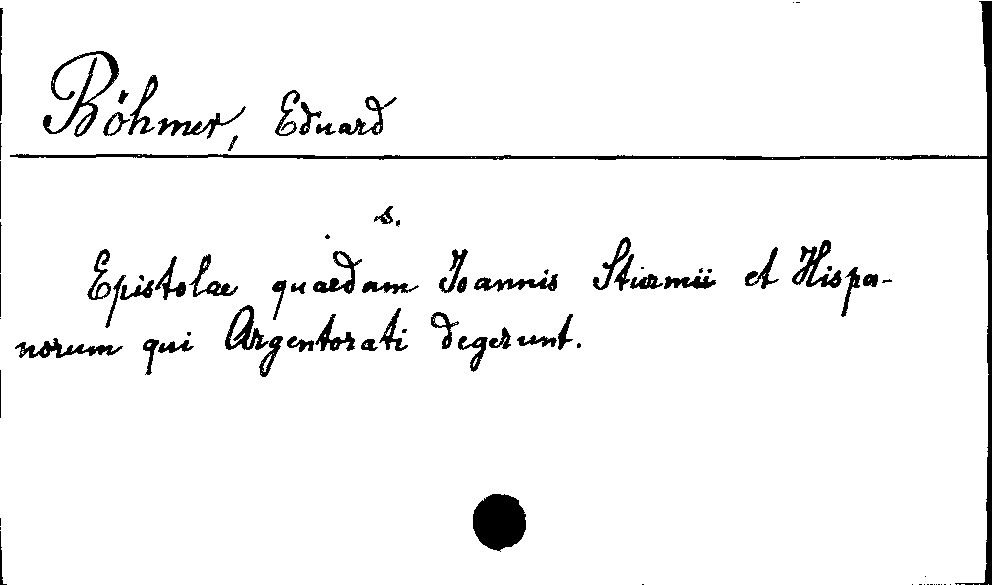 Böhmer, Eduard
s.
Epistolae quaedam Joannis Sturmii et Hispa-
norum qui Argentorati degerunt.